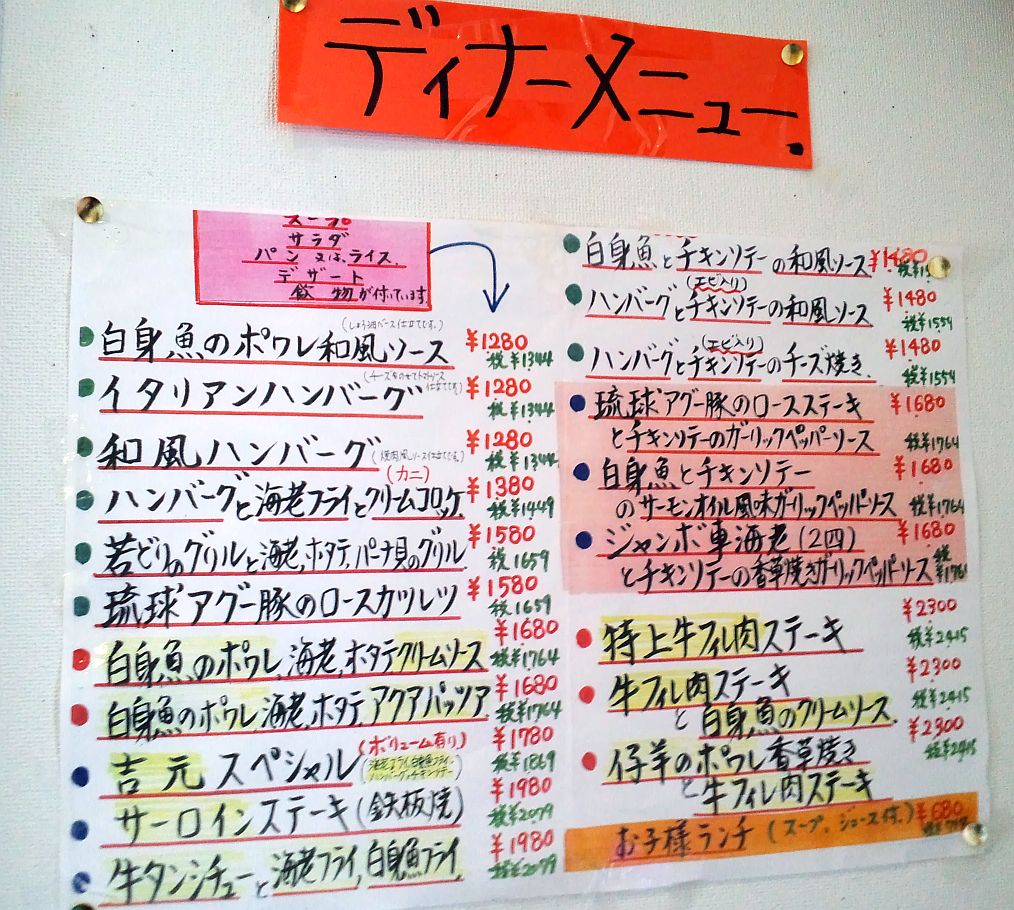 ディナーメニュー
スープ
サラダ
パン又は、ライス
デザート
飲物が付いています
白身魚のポワレ和風ソース ¥1280
税¥1344
イタリアンハンバーグ ¥1280
税¥1344
和風ハンバーグ ¥1280
税¥1344
(カニ)
ハンバーグと海老フライとクリームコロッケ ¥1380
税¥1449
若どりのグリルと海老、ホタテ、パーナ貝のグリル ¥1580
税1659
琉球アグー豚のロースカツレツ ¥1580
税1659
白身魚のポワレ、海老、ホタテクリームソース ¥1680
税¥1764
白身魚のポワレ海老、ホタテ、アクアパッツア ¥1680
税¥1764
吉元スペシャル (ボリューム有り) ¥1780
税¥1869
サーロインステーキ(鉄板焼) ¥1980
税¥2079
牛タンシチューと海老フライ,白身魚フライ ¥1980
税¥2079
白身魚とチキンソテーの和風ソース ¥1480
(エビ入り)
ハンバーグとチキンソテーの和風ソース ¥1480
税¥1554
(エビ入り)
ハンバーグとチキンソテーのチーズ焼き ¥1480
税¥1554
琉球アグー豚のロースステーキ ¥1680
とチキンソテーのガーリックペッパーソース 税¥1764
白身魚とチキンソテー ¥1680
のサーモンオイル風味ガーリックペッパーソース 税¥1764
ジャンボ車海老(2匹) ¥1680
とチキンソテーの香草焼きガーリックペッパーソース
特上牛フィレ肉ステーキ ¥2300
税¥2415
牛フィレ肉ステーキ ¥2300
と白身魚のクリームソース 税¥2415
仔羊のポワレ香草焼き ¥2300
と牛フィレ肉ステーキ 税¥2415
お子様ランチ(スープ、ジュース付) ¥680